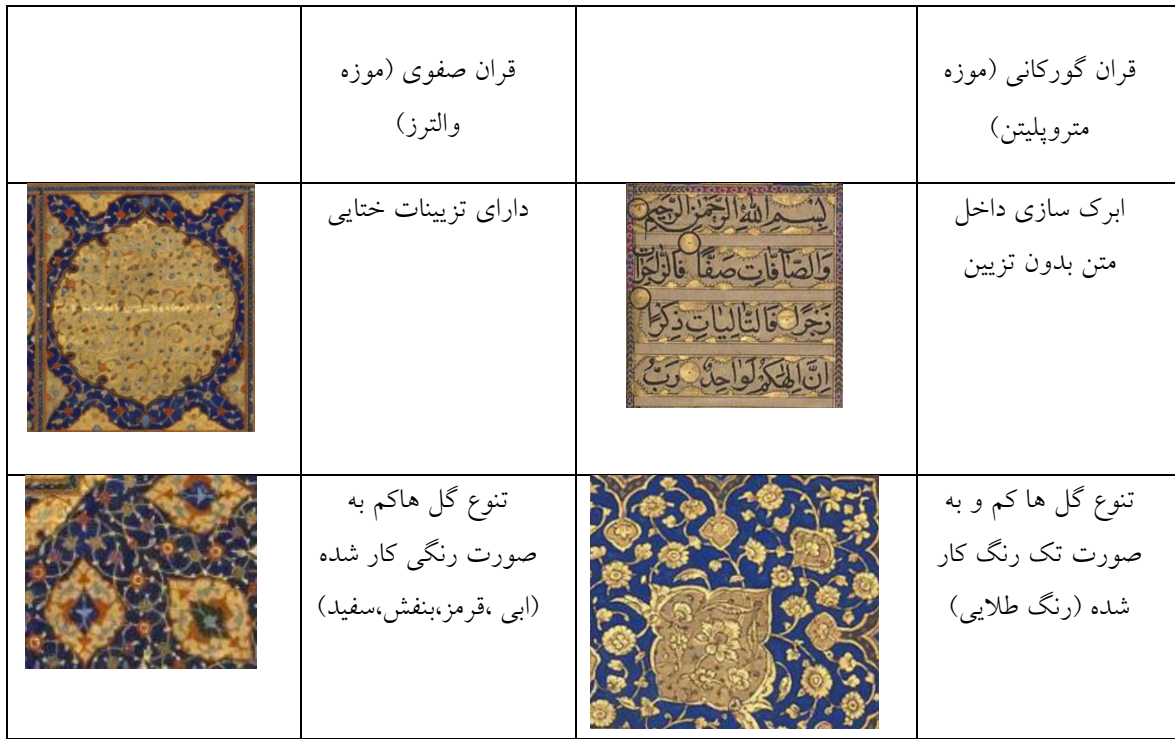 قران گورکانی (موزه
متروپلیتن)
قران صفوی (موزه
والترز)
ابرک سازی داخل
متن بدون تزیین
بِسْمِ اللهِ الرَّحْمٰنِ الرَّحِيْمِ
وَالصَّافَّاتِ صَفًّا فَالزَّاجِرَاتِ
زَجْرًا فَالتَّالِيَاتِ ذِكْرًا
اِنَّ اِلٰهَكُمْ لَوَاحِدٌ رَبُّ
دارای تزیینات ختایی
تنوع گل ها کم و به
صورت تک رنگ کار
شده (رنگ طلایی)
تنوع گل هاکم به
صورت رنگی کار شده
(ابی ،قرمز،بنفش،سفید)